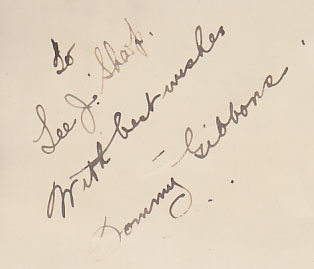 To
Lee J. Sharp.
With best wishes
Tommy Gibbons